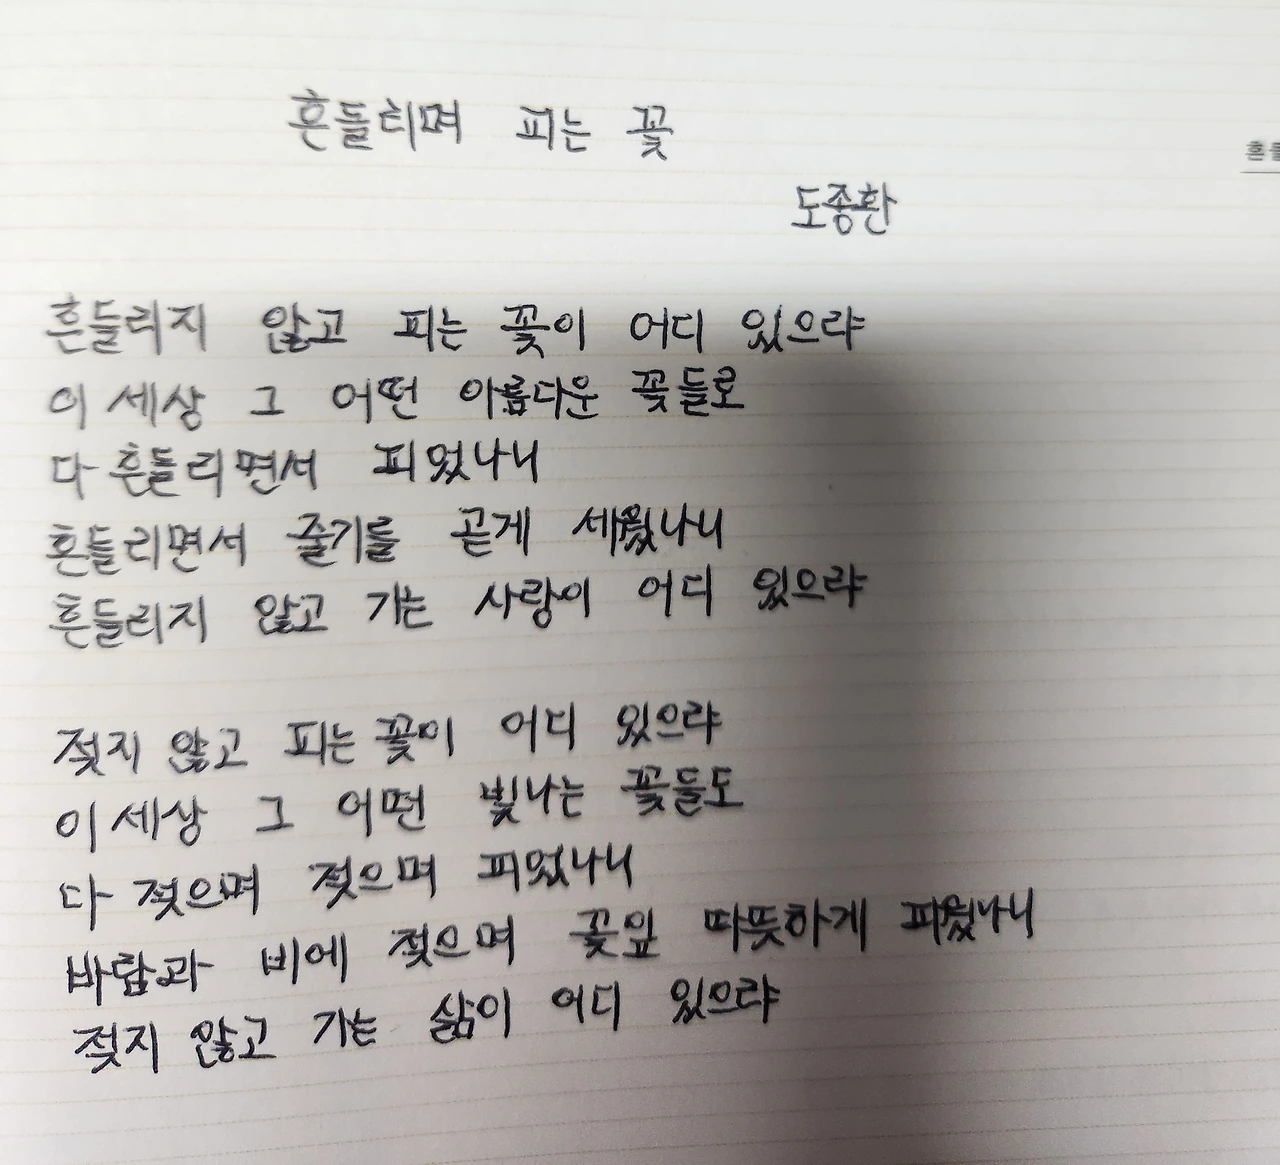 흔들리며 피는 꽃
흔들
도종환
흔들리지 않고 피는 꽃이 어디 있으랴
이 세상 그 어떤 아름다운 꽃들로
다 흔들리면서 피었나니
흔들리면서 줄기를 곧게 세웠나니
흔들리지 않고 가는 사랑이 어디 있으랴
젖지 않고 피는 꽃이 어디 있으랴
이 세상 그 어떤 빛나는 꽃들도
다 젖으며 젖으며 피었나니
바람과 비에 젖으며 꽃잎 따뜻하게 피웠나니
젖지 않고 가는 삶이 어디 있으랴